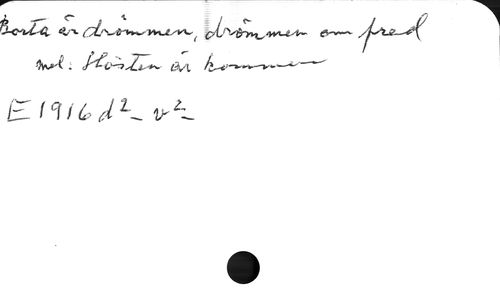 Borta är drömmen, drömmen om fred
mel: Hösten är kommen
E 1916 d² - v² -